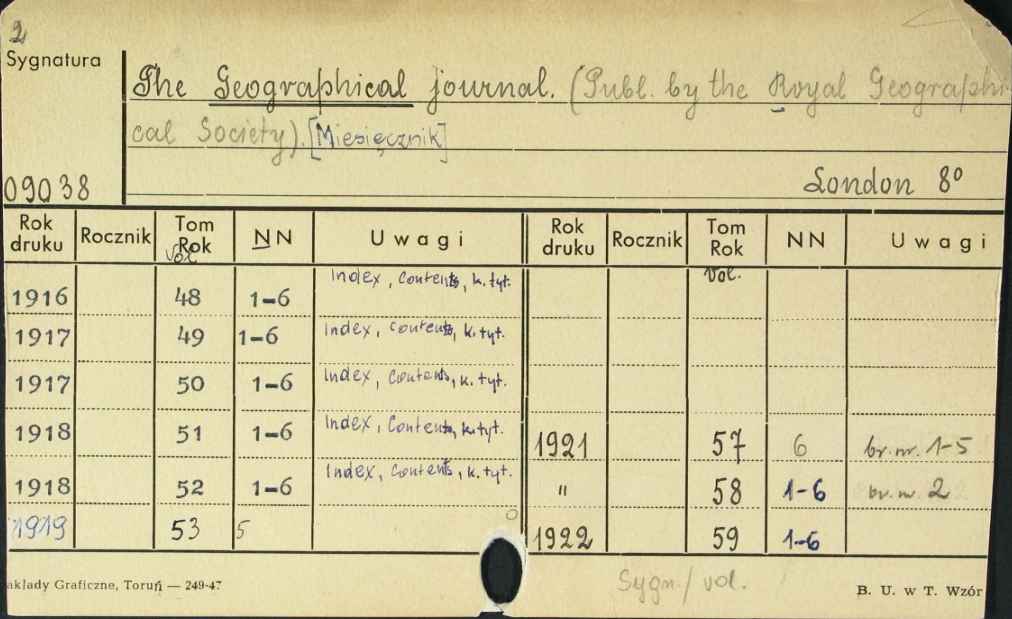 2
Sygnatura
The Geographical journal. (Publ. by the Royal Geographi-
cal Society). [Miesięcznik]
09038
London 8º
Rok druku Rocznik Tom Rok Vol. NN Uwagi Rok druku Rocznik Tom Rok Vol. NN Uwagi
1916 48 1-6 Index, contents, k. tyt.
1917 49 1-6 Index, contents, k. tyt.
1917 50 1-6 Index, contents, k. tyt.
1918 51 1-6 Index, contents, k. tyt. 1921 57 6 br. nr. 1-5
1918 52 1-6 Index, contents, k. tyt. " 58 1-6 br. nr. 2
1919 53 5 1922 59 1-6
Sygn./vol.
akłady Graficzne, Toruń — 249-47 B. U. w T. Wzór